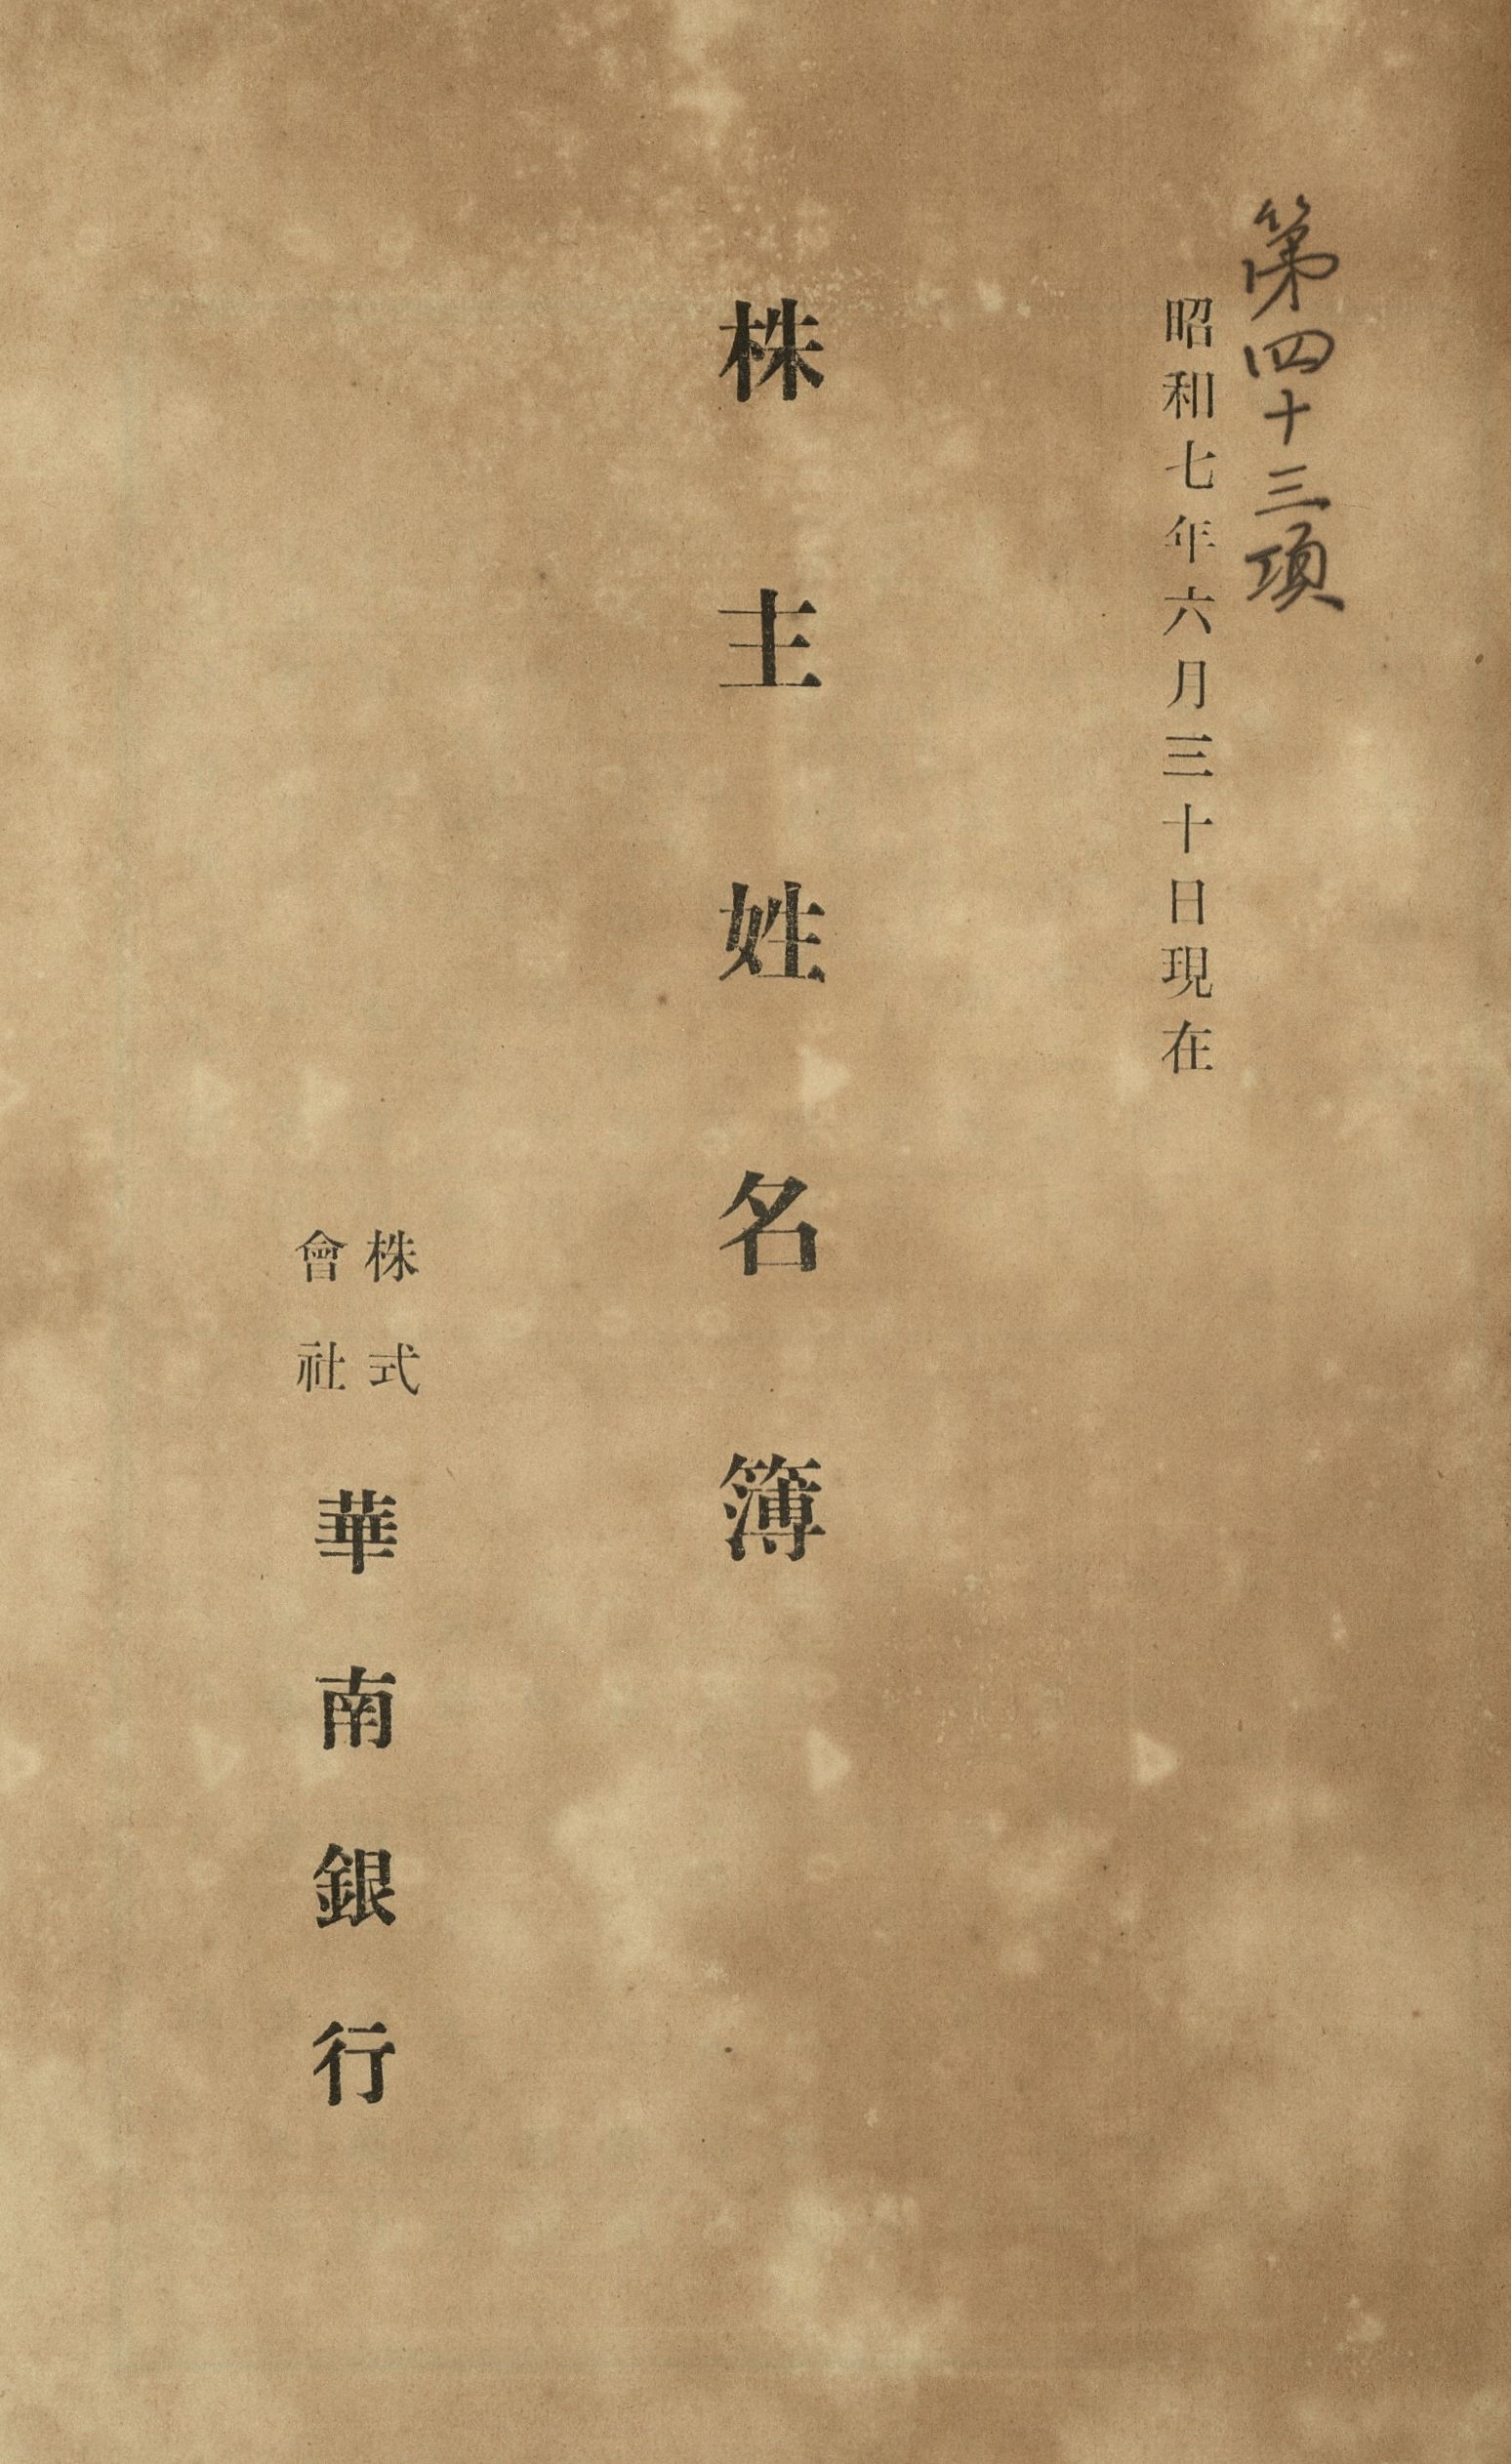 第四十三項
昭和七年六月三十日現在
株主姓名簿
株式
會社
華南銀行